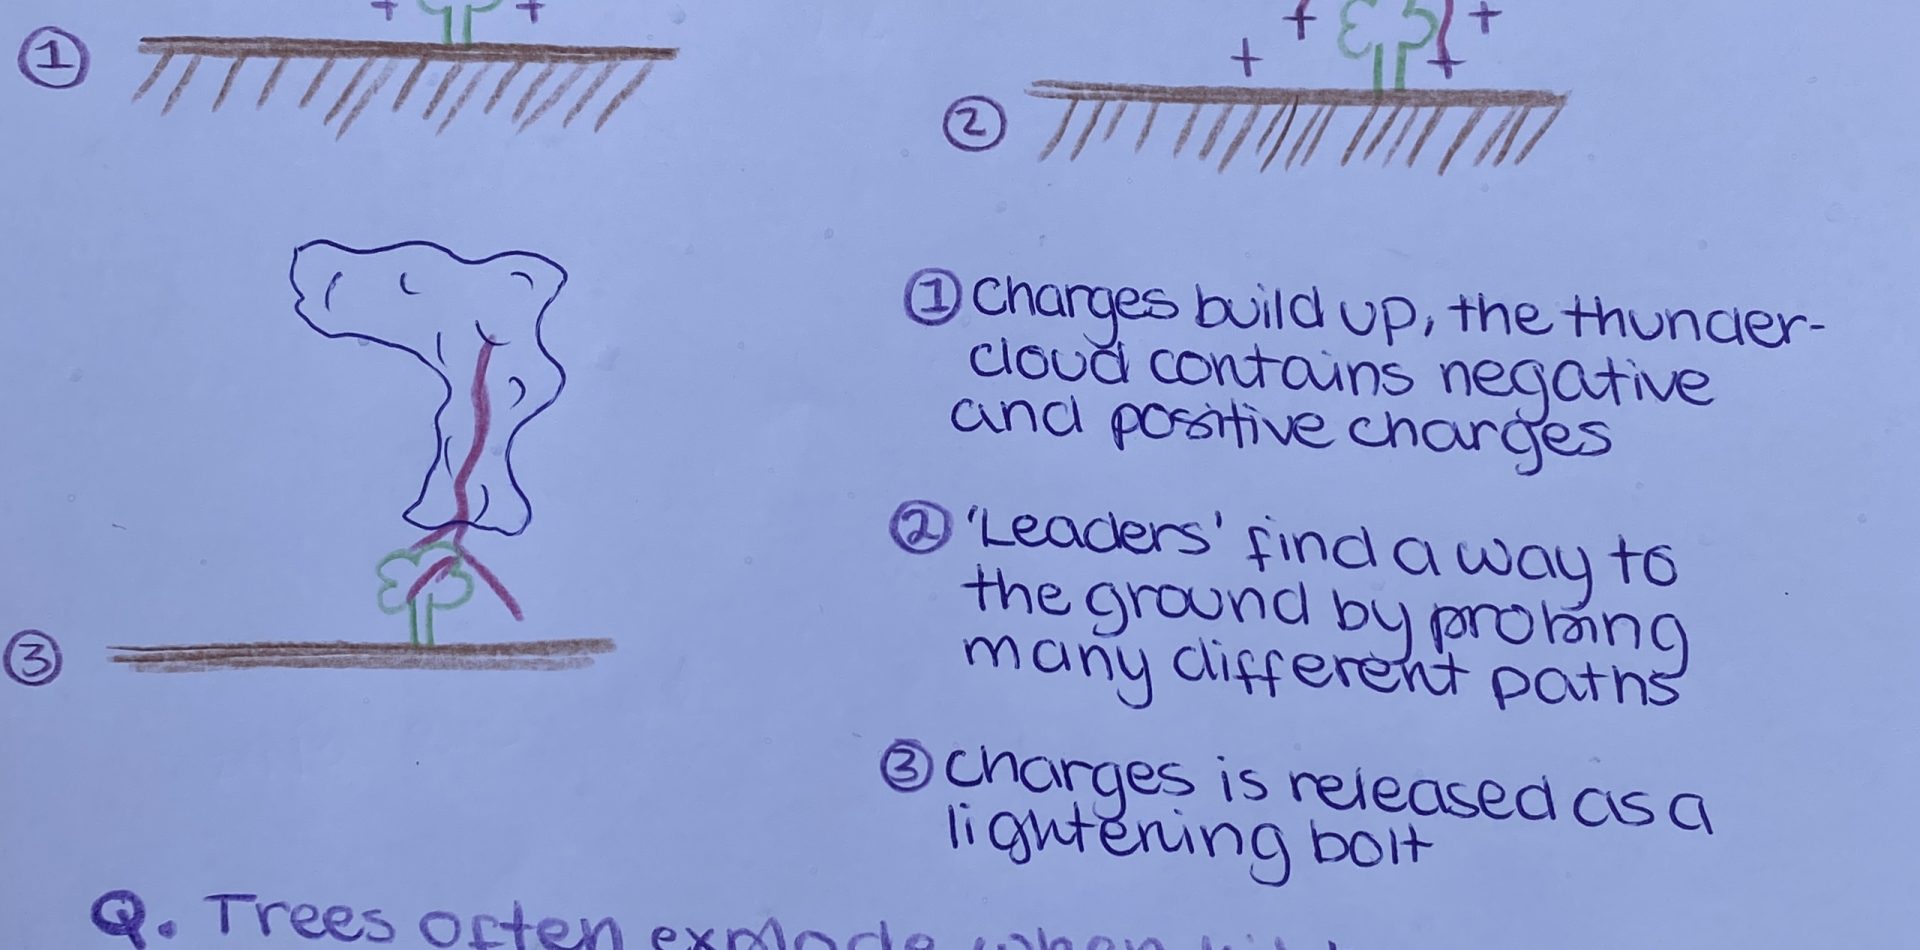 + +
1
+ + + +
2
3
1 Charges build up, the thunder-
cloud contains negative
and positive charges
2 'Leaders' find a way to
the ground by probing
many different paths
3 Charges is released as a
lightening bolt
Q. Trees often explode when